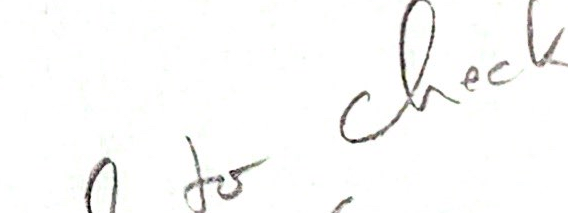 to check